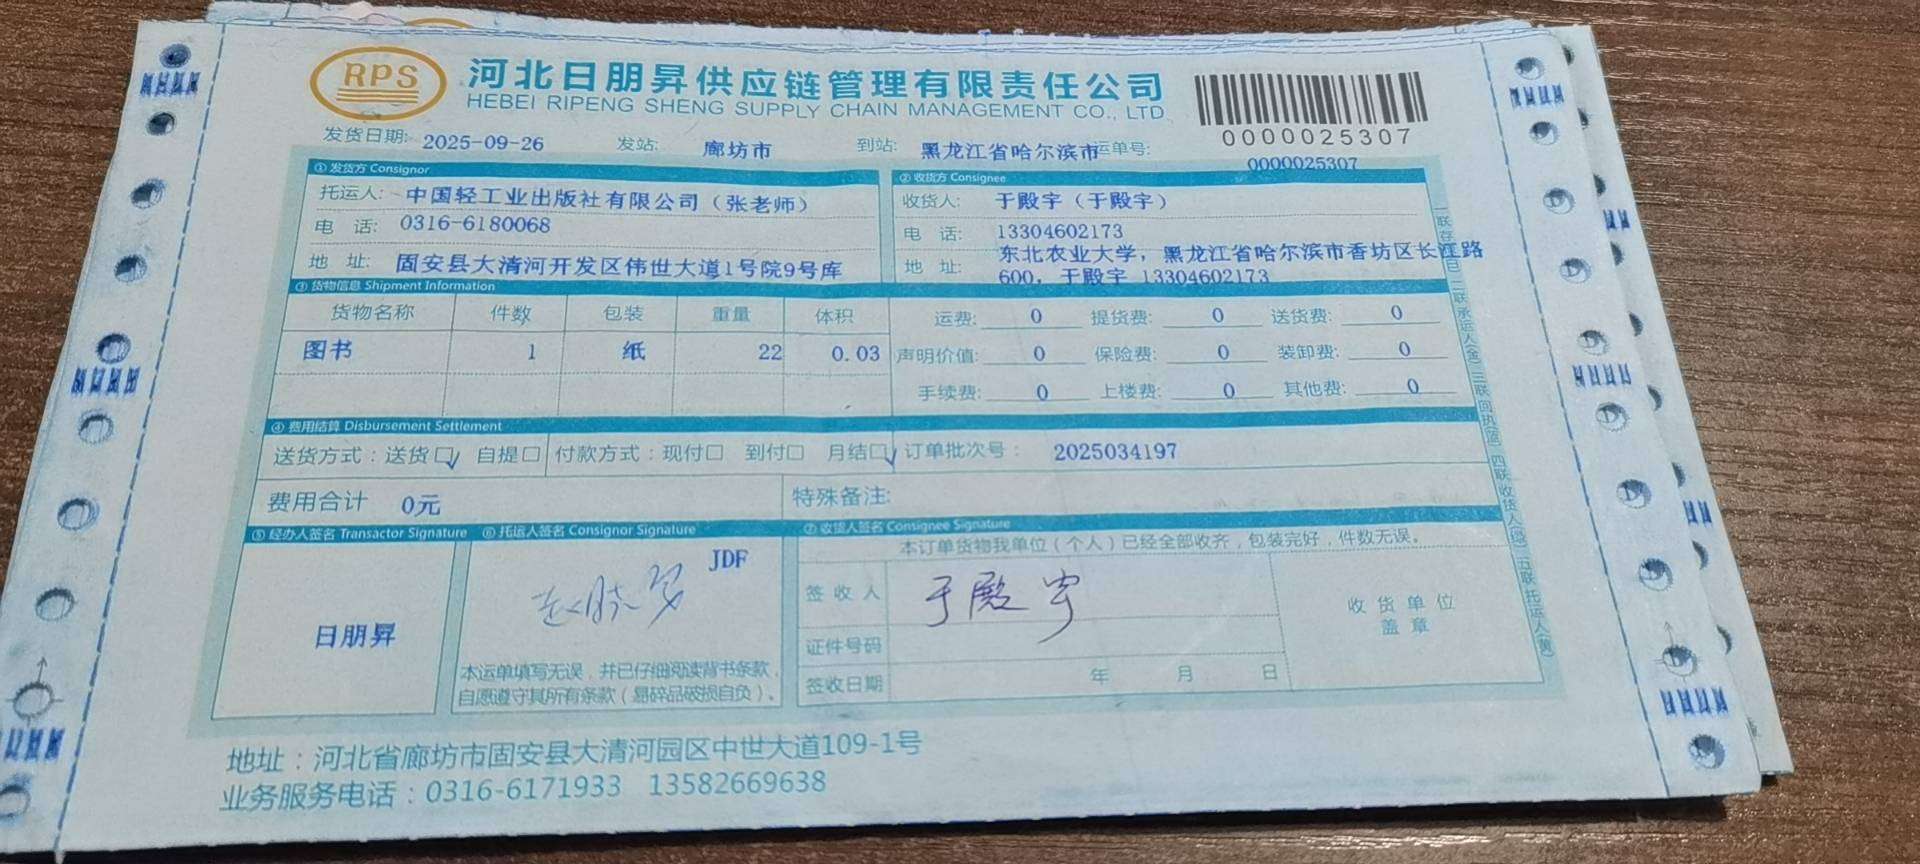 RPS
河北日朋昇供应链管理有限责任公司
HEBEI RIPENG SHENG SUPPLY CHAIN MANAGEMENT CO., LTD.
0000025307
发货日期: 2025-09-26 发站: 廊坊市 到站: 黑龙江省哈尔滨市 运单号: 0000025307
① 发货方 Consignor
托运人: 中国轻工业出版社有限公司（张老师）
电 话: 0316-6180068
地 址: 固安县大清河开发区伟世大道1号院9号库
② 收货方 Consignee
收货人: 于殿宇（于殿宇）
电 话: 13304602173
地 址: 东北农业大学，黑龙江省哈尔滨市香坊区长江路
600，于殿宇 13304602173
③ 货物信息 Shipment Information
货物名称 件数 包装 重量 体积
图书 1 纸 22 0.03
运费: 0 提货费: 0 送货费: 0
声明价值: 0 保险费: 0 装卸费: 0
手续费: 0 上楼费: 0 其他费: 0
④ 费用结算 Disbursement Settlement
送货方式：送货☑ 自提□ 付款方式：现付□ 到付□ 月结☑ 订单批次号： 2025034197
费用合计 0元 特殊备注:
⑤ 经办人签名 Transactor Signature
日朋昇
⑥ 托运人签名 Consignor Signature
JDF
本运单填写无误，并已仔细阅读背书条款，
自愿遵守其所有条款（易碎品破损自负）。
⑦ 收货人签名 Consignee Signature
本订单货物我单位（个人）已经全部收齐，包装完好，件数无误。
签 收 人 于殿宇
证件号码
签收日期 年 月 日
收 货 单 位
盖 章
地址：河北省廊坊市固安县大清河园区中世大道109-1号
业务服务电话：0316-6171933 13582669638